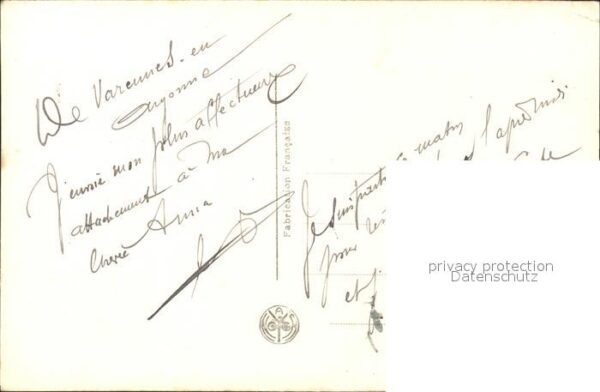 De Varennes-en
Argonne
J'envoie mon plus affectueux
attachement à ma
chérie Anna
Fabrication Française
Je suis parti ce matin
l'après midi
de
pour
et j'
privacy protection
Datenschutz